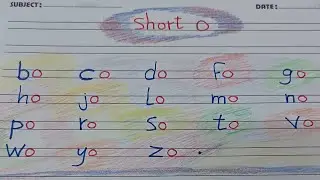 SUBJECT: DATE:
Short o
bo co do fo go
ho jo lo mo no
po ro so to vo
wo yo zo .